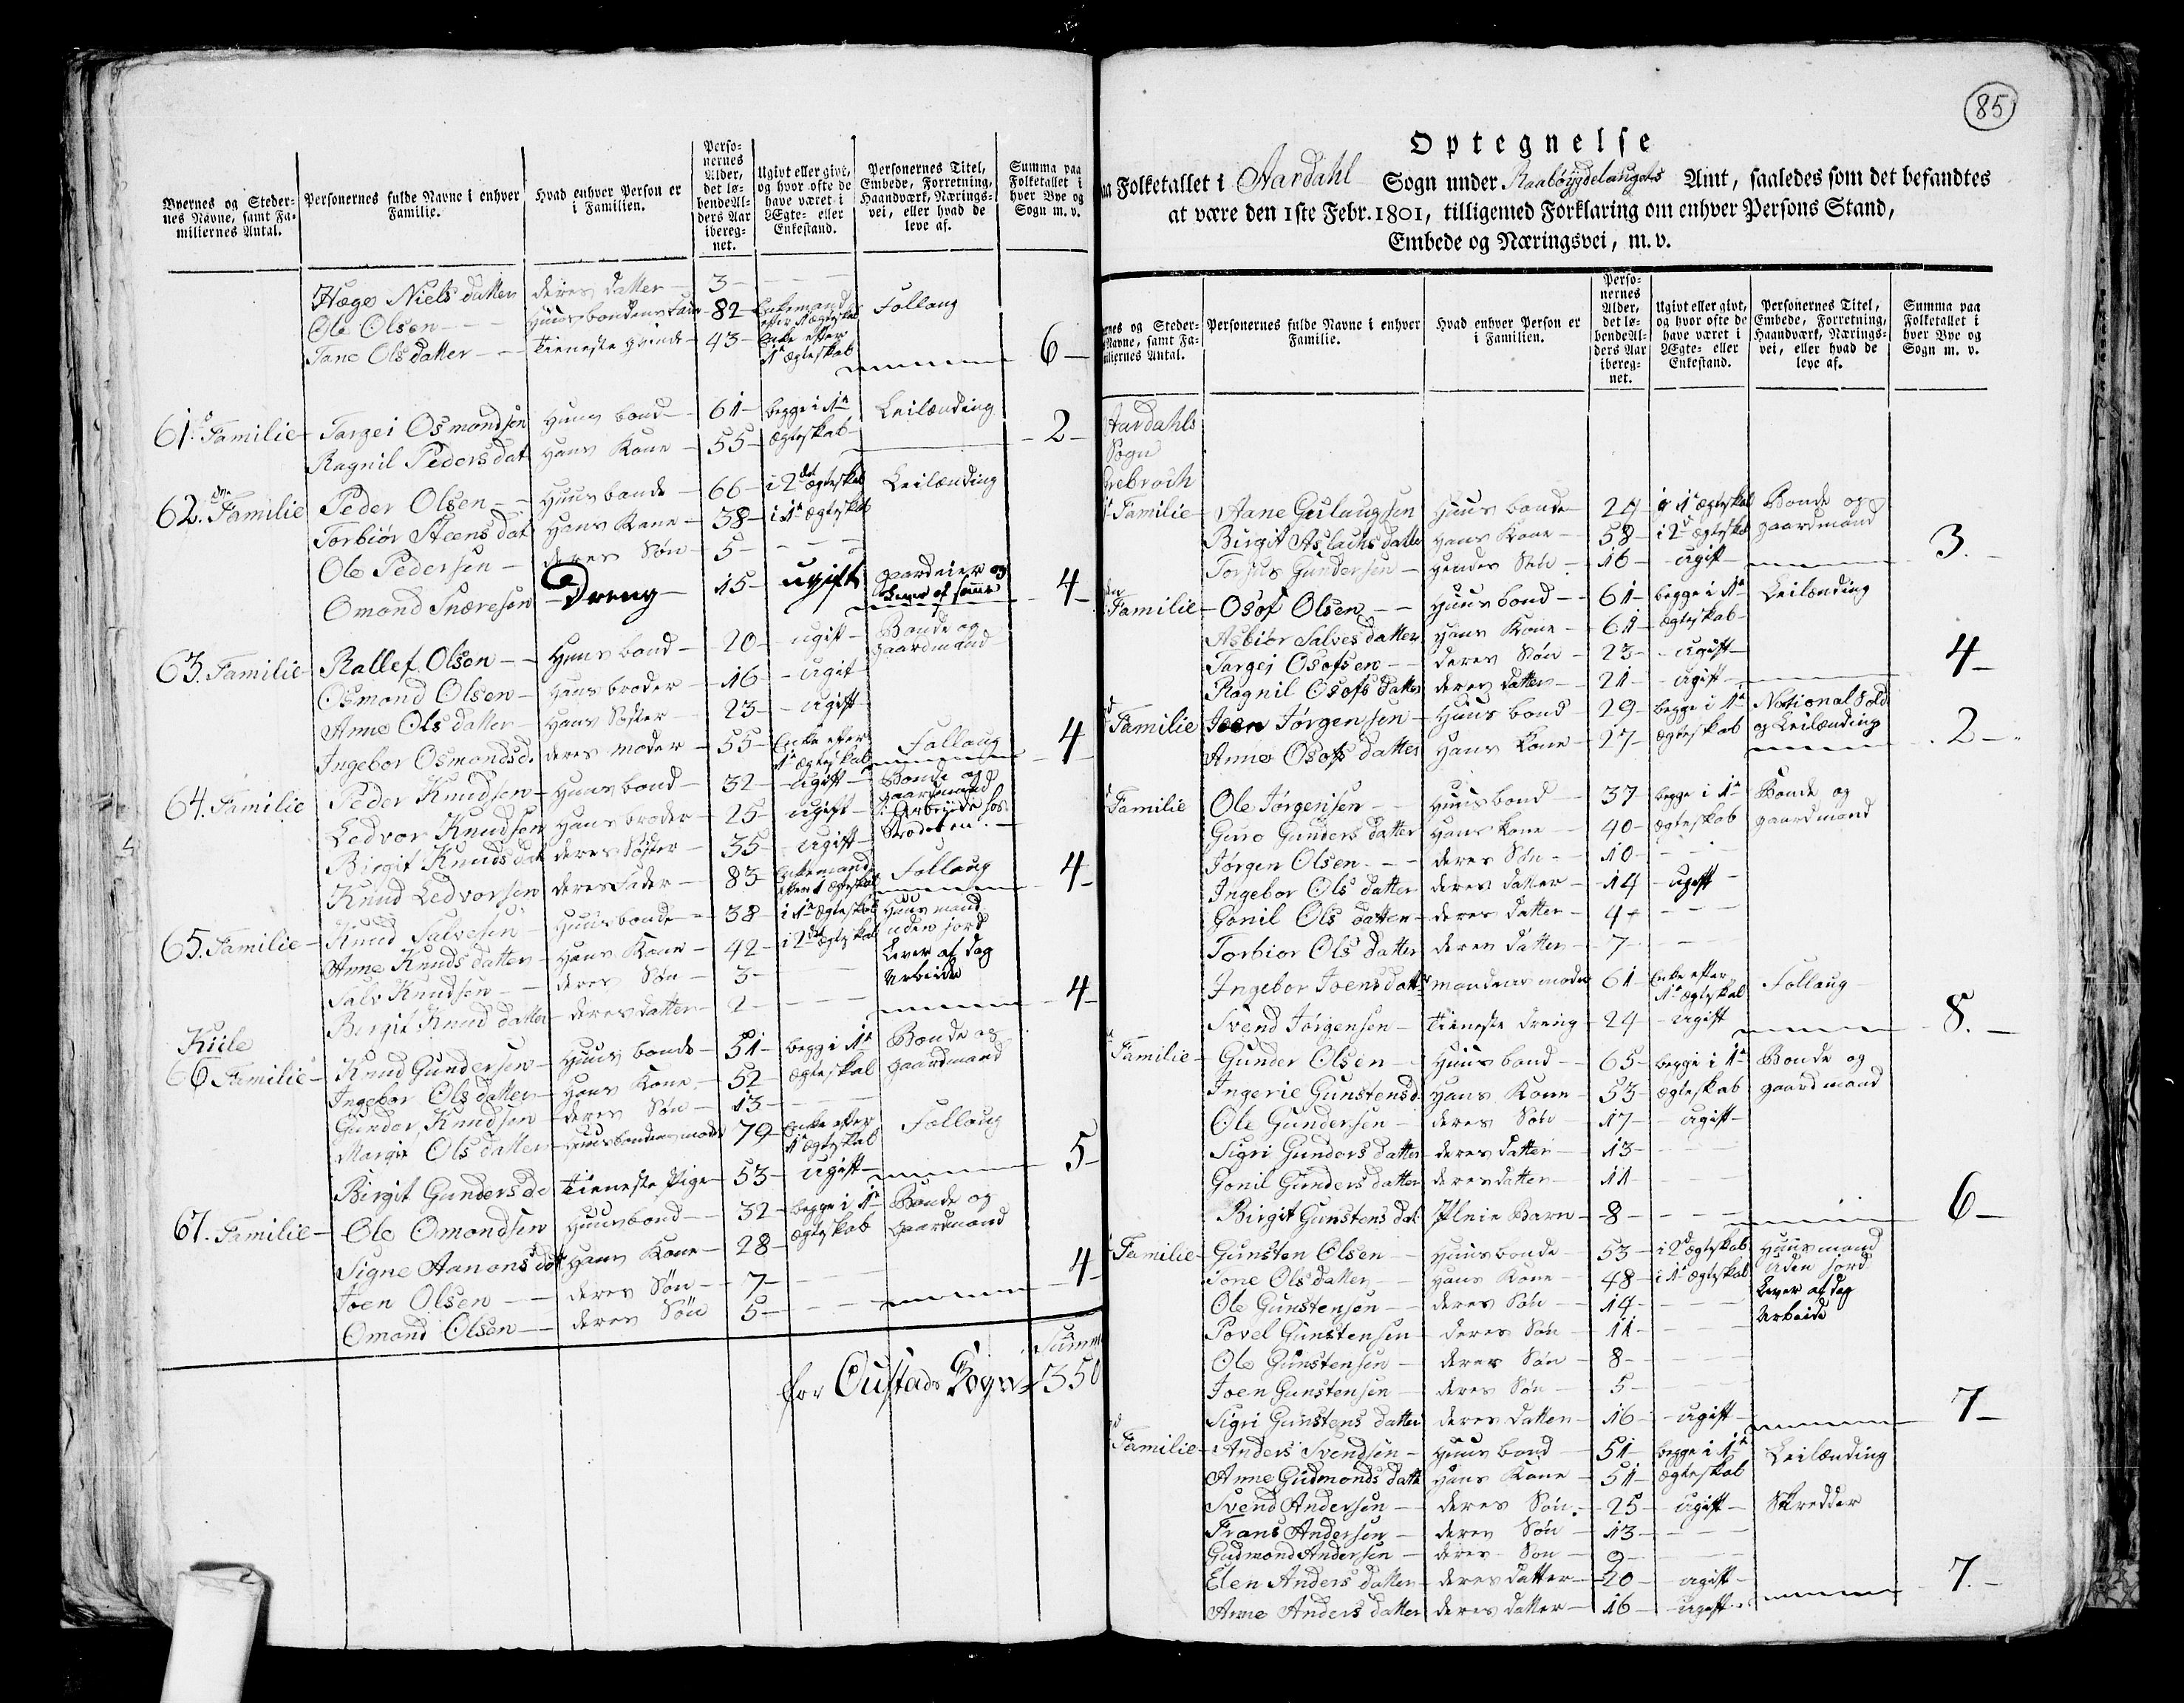 Byernes og Steder-
nes Navne, samt Fa-
miliernes Antal.
Personernes fulde Navne i enhver
Familie.
Hvad enhver Person er
i Familien.
Perso-
nernes
Alder,
det lø-
bende Al-
ders Aar
ibereg-
net.
Ugivt eller givt,
og hvor ofte de
have været i
Ægte- eller
Enkestand.
Personernes Titel,
Embede, Forretning,
Haandværk, Nærings-
vei, eller hvad de
leve af.
Summa paa
Folketallet i
hver Bye og
Sogn m. v.
Hæge Niels datter deres datter 3
Ole Olsen Huusbondens Fader 82 Enkemand efter 1te ægteskab Follaug
Tane Olsdatter tieneste qvinde 43 Enke efter 1te ægteskab 6
61. Familie Targei Osmondsen Huusbond 61 begge i 1te Leilænding
Ragnil Pedersdat Hans Kone 55 ægteskab 2
62. Familie Peder Olsen Huusbonde 66 i 2det ægteskab Leilænding
Torbiör Steensdat Hans Kone 38 i 1te ægteskab
Ole Pedersen deres Søn 5
Omond Snæresen Dreng 15 ugift gaardeier og lever af samme 4
63. Familie Rallef Olsen Huusbond 20 ugift Bonde og gaardmand
Osmond Olsen Hans broder 16 ugift
Anne Olsdatter Hans Søster 23 ugift
Ingebor Osmondsd. deres moder 55 Enke efter 1te ægteskab Follaug 4
64. Familie Peder Knudsen Huusbond 32 ugift Bonde og gaardmand
Ledvor Knudsen Hans broder 25 ugift i Arbeide hos Brodren.
Birgit Knudsdat deres Søster 35 ugift
Knud Ledvorsen deres Fader 83 Enkemand efter 1 ægteskab Follaug 4
65. Familie Knud Salvesen Huusbonde 38 i 1te ægteskab Huusmand
Anne Knudsdatter Hans Kone 42 i 2det ægteskab uden jord
Salv Knudsen deres Søn 3 Lever af dag
Birgit Knud datter deres datter 2 Arbeide 4
Kiile
66 Familie Knud Gundersen Huusbonde 51 begge i 1te Bonde og
Ingebor Olsdatter Hans Kone 52 ægteskab gaardmand
Gunder Knudsen deres Søn 13
Margit Olsdatter Huusbondens moder 79 Enke efter 1te ægteskab Follaug
Birgit Gundersd. tieneste Pige 53 ugift 5
67. Familie Ole Omondsen Huusbond 32 begge i 1te Bonde og
Signe Aanonsdat Hans Kone 28 ægteskab Gaardmand
Joen Olsen deres Søn 7
Omond Olsen deres Søn 5 4
Summa
for Oustads Sogn 350
85
Optegnelse
Folketallet i Aardahl Sogn under Raabøygdelaugets Amt, saaledes som det befandtes
at være den 1ste Febr. 1801, tilligemed Forklaring om enhver Persons Stand,
Embede og Næringsvei, m. v.
og Steder-
Navne, samt Fa-
miliernes Antal.
Personernes fulde Navne i enhver
Familie.
Hvad enhver Person er
i Familien.
Perso-
nernes
Alder,
det lø-
bende Al-
ders Aar
ibereg-
net.
Ugivt eller givt,
og hvor ofte de
have været i
Ægte- eller
Enkestand.
Personernes Titel,
Embede, Forretning,
Haandværk, Nærings-
vei, eller hvad de
leve af.
Summa paa
Folketallet i
hver Bye og
Sogn m. v.
Aardahls
Sogn
Familie Aane Guilaugsen Huusbonde 24 i 1te ægteskab Bonde og
Birgit Aslachsdatter Hans Kone 58 i 2d ægteskab gaardmand
Torjus Gundersen Hendes Søn 16 ugift 3.
Familie Osof Olsen Huusbond 61 begge i 1te Leilænding
Asbiör Salvesdatter Hans Kone 61 ægteskab
Targej Osofsen deres Søn 23 ugift
Ragnil Osofsdatter deres datter 21 ugift 4
Familie Joen Jørgensen Huusbond 29 begge i 1te National Sold.
Anne Osofsdatter Hans Kone 27 ægteskab og Leilænding 2
Familie Ole Jørgensen Huusbond 37 begge i 1te Bonde og
Guro Gundersdatter Hans Kone 40 ægteskab gaardmand
Jørgen Olsen deres Søn 10
Ingebor Olsdatter deres datter 14 ugift
Gonil Olsdatter deres datter 4
Torbior Olsdatter deres datter 7
Ingebor Joensdatter mandens moder 61 Enke efter 1te ægteskab Follaug
Svend Jörgensen tieneste dreng 24 ugift 8.
Familie Gunder Olsen Huusbond 65 begge i 1te Bonde og
Ingerie Gunstensd. Hans Kone 53 ægteskab gaardmand
Ole Gundersen deres Søn 17 ugift
Sigri Gundersdatter deres datter 13
Gonil Gundersdatter deres datter 11
Birgit Gunstensdat. Pleie Barn 8 6
Familie Gunsten Olsen Huusbonde 53 i 2d ægteskab Huusmand
Tone Olsdatter Hans Kone 48 i 1te ægteskab uden jord
Ole Gunstensen deres Søn 14 Lever af dag
Povel Gunstensen deres Søn 11 Arbeide
Ole Gunstensen deres Søn 8
Joen Gunstensen deres Søn 5
Sigri Gunstens datter deres datter 16 ugift 7
Familie Anders Svendsen Huusbond 51 begge i 1te Leilænding
Anne Gudmondsdatter Hans Kone 51 ægteskab
Svend Andersen deres Søn 25 ugift Skredder
Frans Andersen deres Søn 13
Gudmond Andersen deres Søn 9
Elen Andersdatter deres datter 20 ugift
Anne Andersdatter deres datter 16 ugift 7.